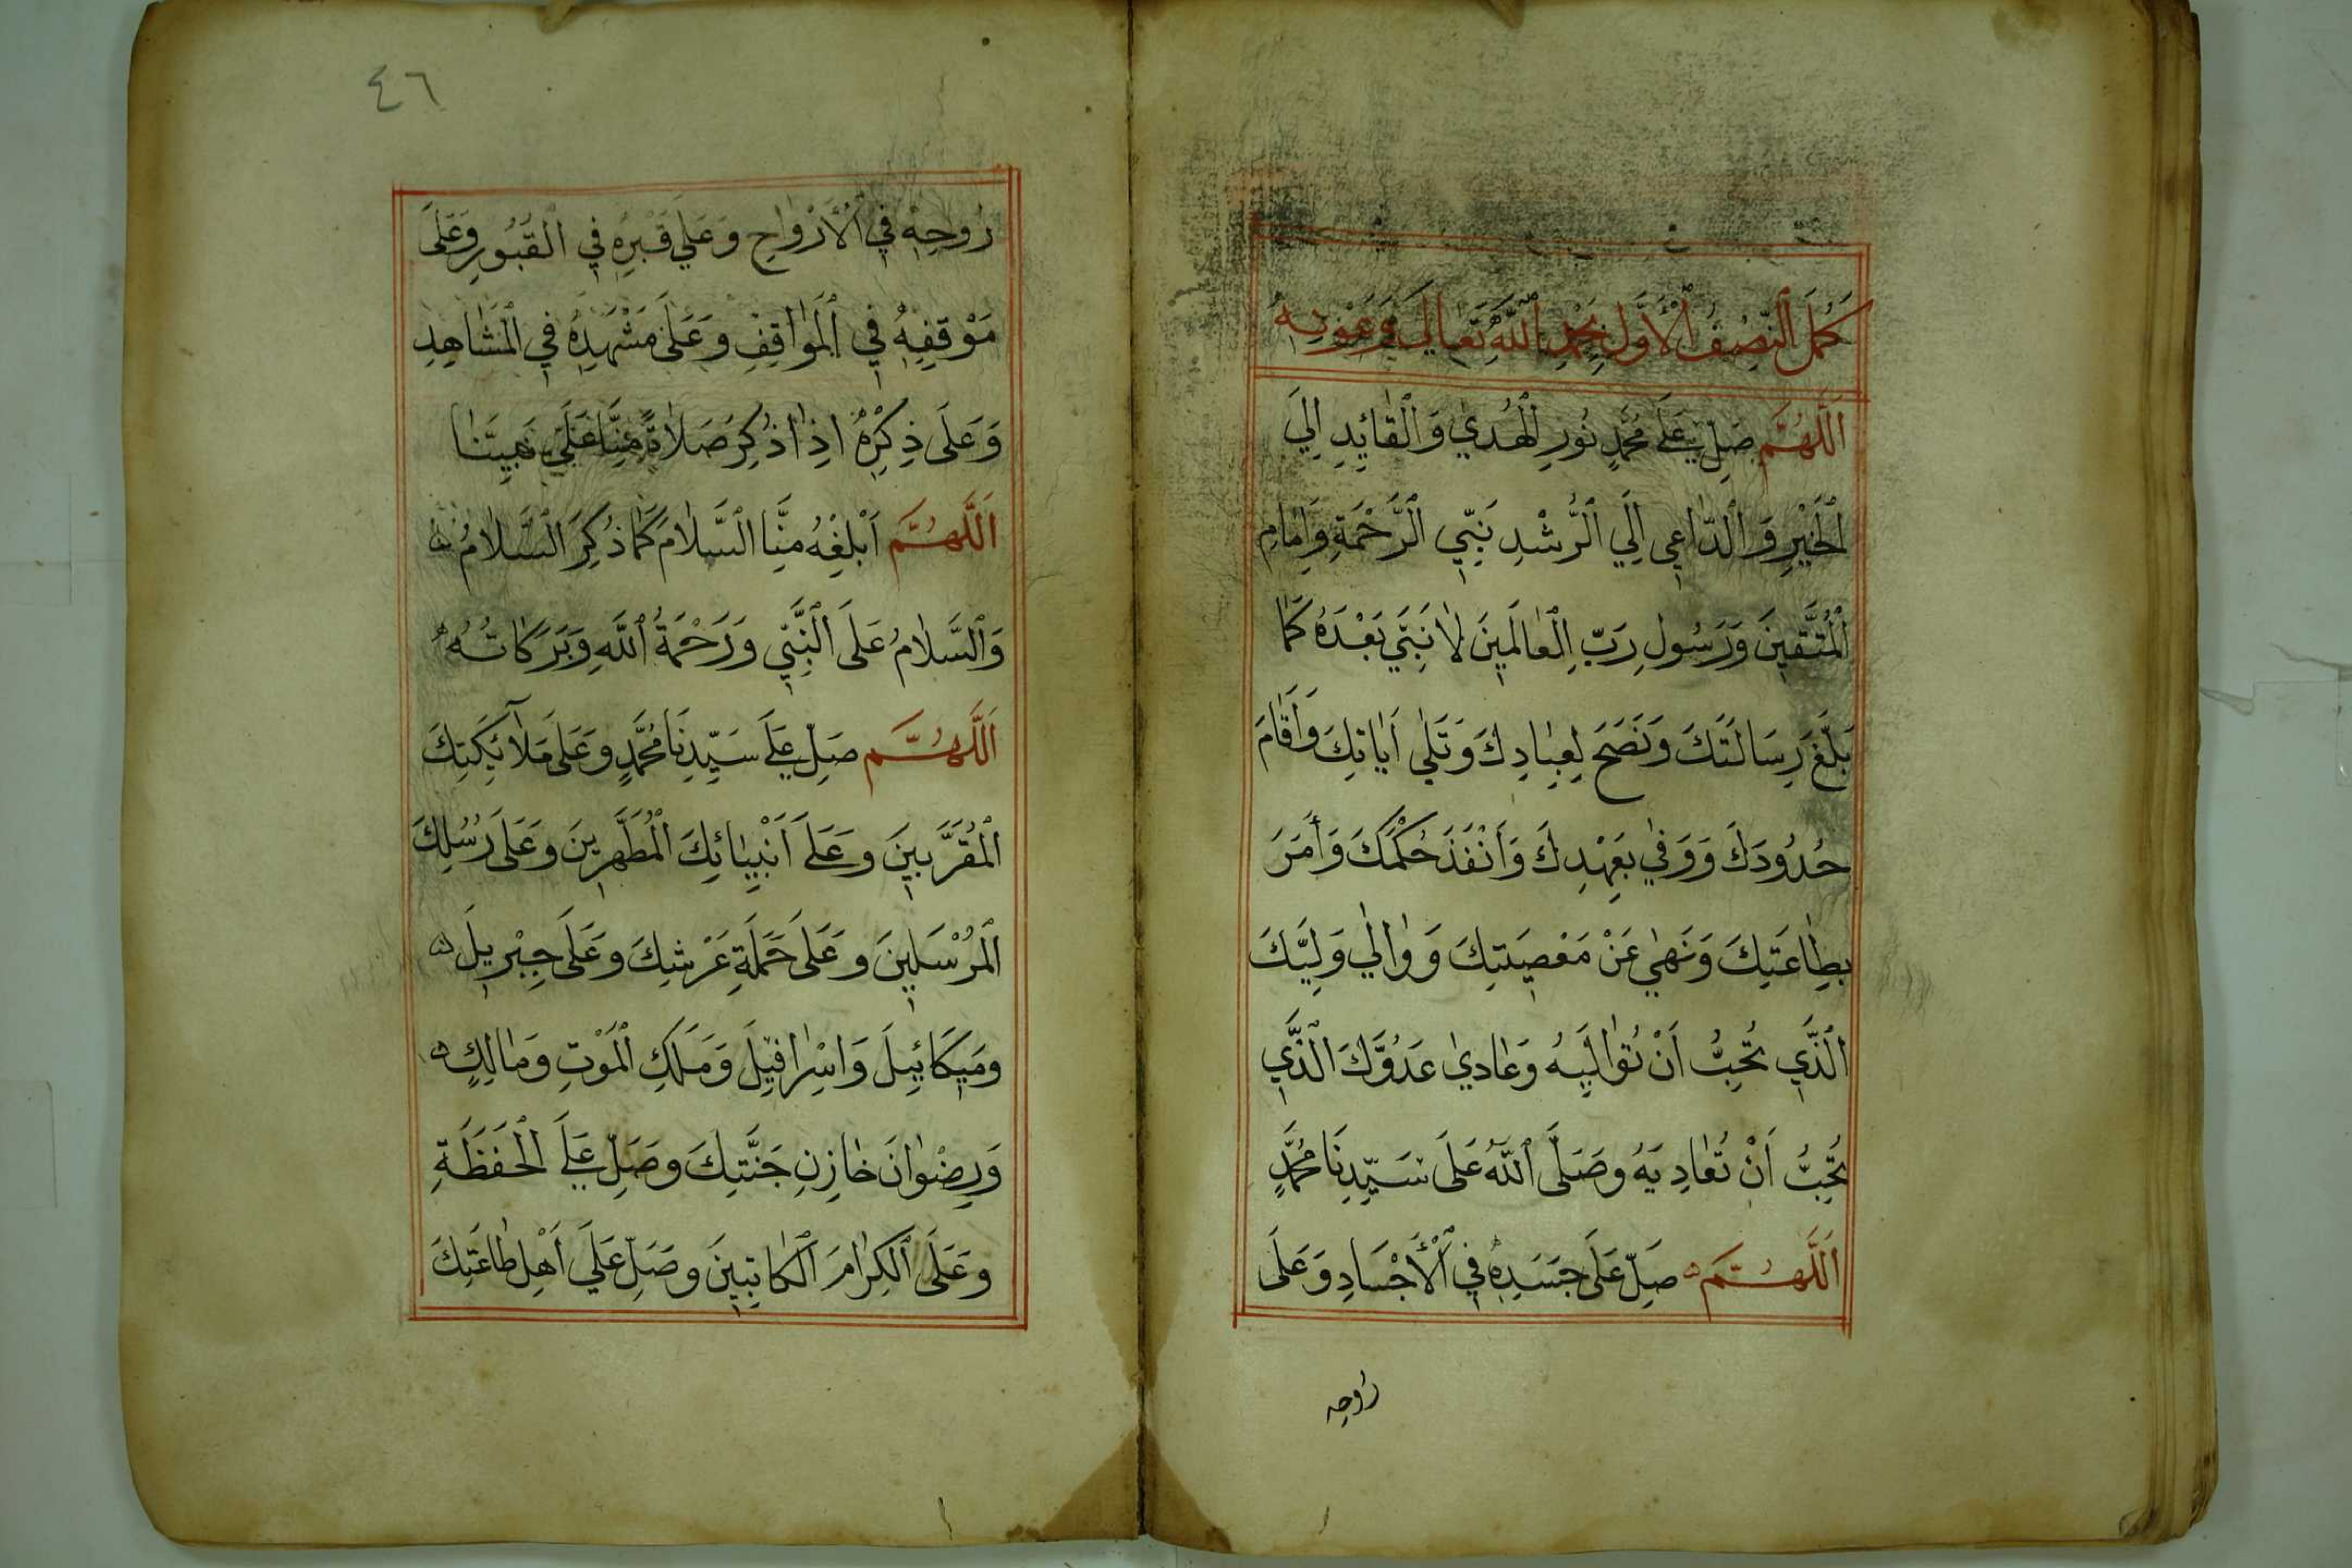 كَمُلَ النِّصْفُ الْأَوَّلِ بِحَمْدِ اللَّهِ تَعَالَى وَعَوْنِهِ
اَللَّهُمَّ صَلِّ عَلَى مُحَمَّدٍ نُورِ الْهُدٰي وَالْقَائِدِ اِلَي
الْخَيْرِ وَالدَّاعِي اِلَي الرُّشْدِ نَبِيِّ الرَّحْمَةِ وَاِمَامِ
الْمُتَّقِينَ وَرَسُولِ رَبِّ الْعَالَمِينَ لَا نَبِيَّ بَعْدَهُ كَمَا
بَلَّغَ رِسَالَتَكَ وَنَصَحَ لِعِبَادِكَ وَتَلٰي اٰيَاتِكَ وَاَقَامَ
حُدُودَكَ وَوَفٰي بِعَهْدِكَ وَاَنْفَذَ حُكْمَكَ وَاَمَرَ
بِطَاعَتِكَ وَنَهٰي عَنْ مَعْصِيَتِكَ وَوَالٰي وَلِيَّكَ
الَّذِي تُحِبُّ اَنْ تُوَالِيَهُ وَعَادٰي عَدُوَّكَ الَّذِي
تُحِبُّ اَنْ تُعَادِيَهُ وَصَلَّى اللَّهُ عَلَى سَيِّدِنَا مُحَمَّدٍ
اَللَّهُمَّ صَلِّ عَلَى جَسَدِهِ فِي الْاَجْسَادِ وَعَلَى
روحه
٤٦
رُوحِهِ فِي الْاَرْوَاحِ وَعَلَي قَبْرِهِ فِي الْقُبُورِ وَعَلَى
مَوْقِفِهِ فِي الْمَوَاقِفِ وَعَلَى مَشْهَدِهِ فِي الْمَشَاهِدِ
وَعَلَى ذِكْرِهِ اِذَا ذُكِرَ صَلَاةً مِنَّا عَلَى نَبِيِّنَا
اَللَّهُمَّ اَبْلِغْهُ مِنَّا السَّلَامَ كَمَا ذُكِرَ السَّلَامُ
وَالسَّلَامُ عَلَى النَّبِيِّ وَرَحْمَةُ اللَّهِ وَبَرَكَاتُهُ
اَللَّهُمَّ صَلِّ عَلَى سَيِّدِنَا مُحَمَّدٍ وَعَلَى مَلَآئِكَتِكَ
الْمُقَرَّبِينَ وَعَلَى اَنْبِيَائِكَ الْمُطَهَّرِينَ وَعَلَى رُسُلِكَ
الْمُرْسَلِينَ وَعَلَى حَمَلَةِ عَرْشِكَ وَعَلَى جِبْرِيلَ
وَمِيكَائِيلَ وَاِسْرَافِيلَ وَمَلَكِ الْمَوْتِ وَمَالِكٍ
وَرِضْوَانَ خَازِنِ جَنَّتِكَ وَصَلِّ عَلَى الْحَفَظَةِ
وَعَلَى الْكِرَامَ الْكَاتِبِينَ وَصَلِّ عَلَي اَهْلِ طَاعَتِكَ